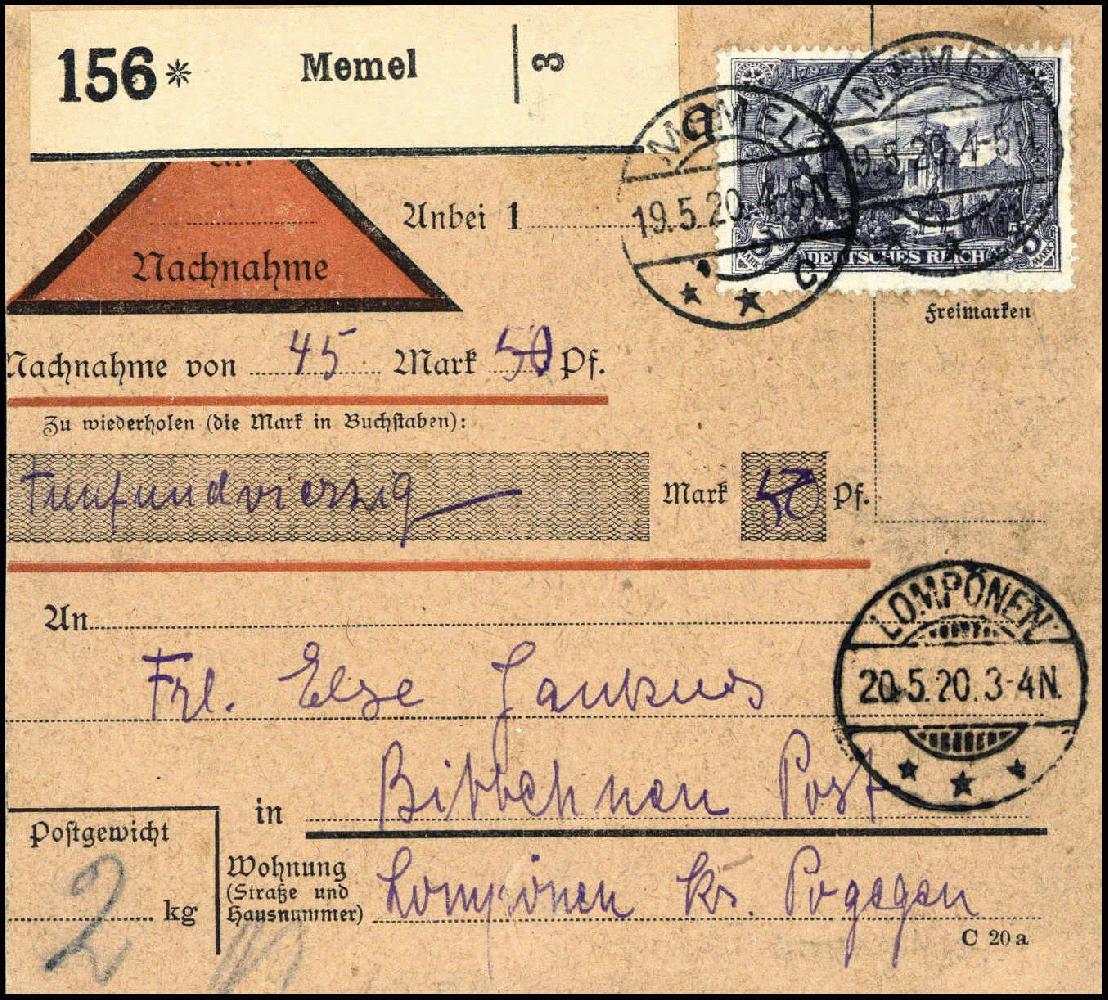 156* Memel 3
a
MEMEL
19.5.20. 4-5N
c
MEMEL
19.5.20. 4-5N
3 MARK DEUTSCHES REICH 3 MARK
Freimarken
Anbei 1
Nachnahme
Nachnahme von 45 Mark 50 Pf.
Zu wiederholen (die Mark in Buchstaben):
Fuenfundvierzig Mark 50 Pf.
LOMPÖNEN
20.5.20. 3-4N.
An
Frl. Else Jankus
in Bittehnen Post
Postgewicht
2 kg
Wohnung
(Straße und
Hausnummer)
Lompönen Kr. Pogegen
C 20 a